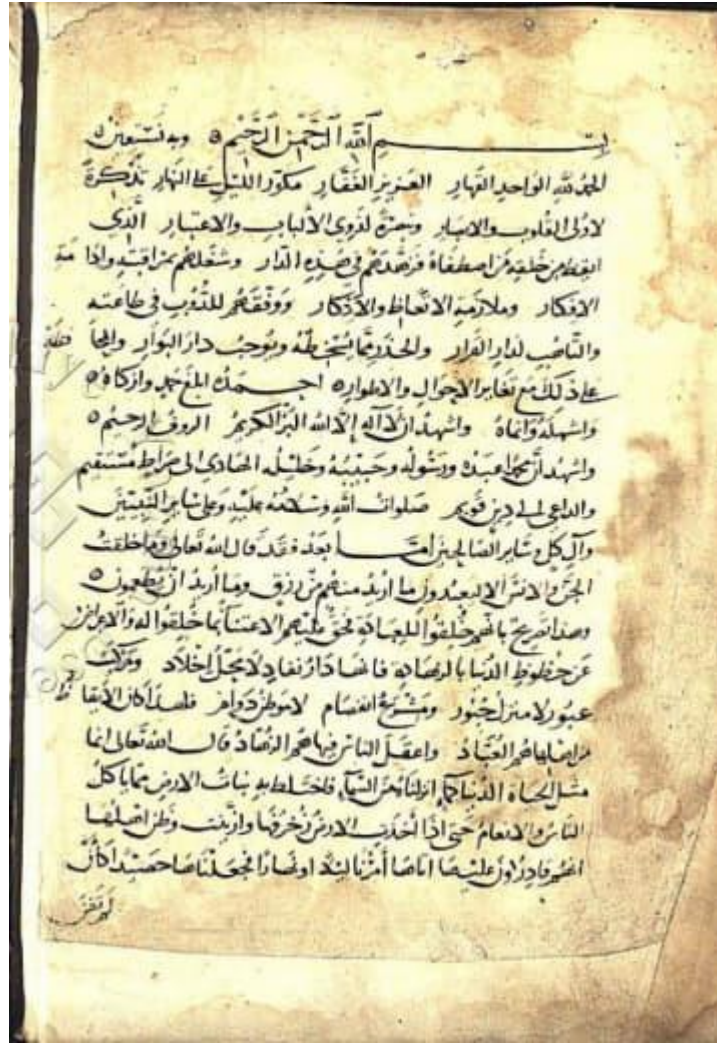 بسم الله الرحمن الرحيم ٥ وبه نستعين ٥
الحمد لله الواحد القهار العزيز الغفار مكور الليل على النهار تذكرة
لاولى القلوب والابصار وتبصرة لذوي الألباب والاعتبار الذي
ايقظ من خلقه من اصطفاه فزهدهم في هذه الدار وشغلهم بمراقبته وادامة
الافكار وملازمة الاتعاظ والاذكار ووفقهم للدؤب في طاعته
والتاهب لدار القرار والحذر مما يسخطه ويوجب دار البوار والمحافظة
على ذلك مع تغاير الاحوال والاطوار ٥ احمده ابلغ حمد وازكاه ٥
واشمله وانماه واشهد ان لا اله إلا الله البر الكريم الروف الرحيم ٥
واشهد أن محمدا عبده ورسوله وحبيبه وخليله الهادي الى صراط مستقيم
والداعي الى دين قويم صلوات الله وسلامه عليه وعلى سائر النبيين
وآل كل وسائر الصالحين اما بعد فقد قال الله تعالى وما خلقت
الجن والانس الا ليعبدون ما اريد منهم من رزق وما أريد ان يطعمون ٥
وهذا تصريح بانهم خلقوا للعبادة فحق عليهم الاعتناء بما خلقوا له والاعراض
عن حظوظ الدنيا بالزهادة فانها دار نفاد لا محل اخلاد ومركب
عبور لا منزل حبور ومشرعة انفصام لا موطن دوام فلهذا كان الايقاظ
من اهلها هم العباد واعقل الناس فيها هم الزهاد قال الله تعالى انما
مثل الحياة الدنيا كماء انزلناه من السماء فاختلط به نبات الارض مما ياكل
الناس والانعام حتى اذا اخذت الارض زخرفها وازينت وظن اهلها
انهم قادرون عليها اتاها أمرنا ليلا او نهارا فجعلناها حصيدا كأن
لم تغن